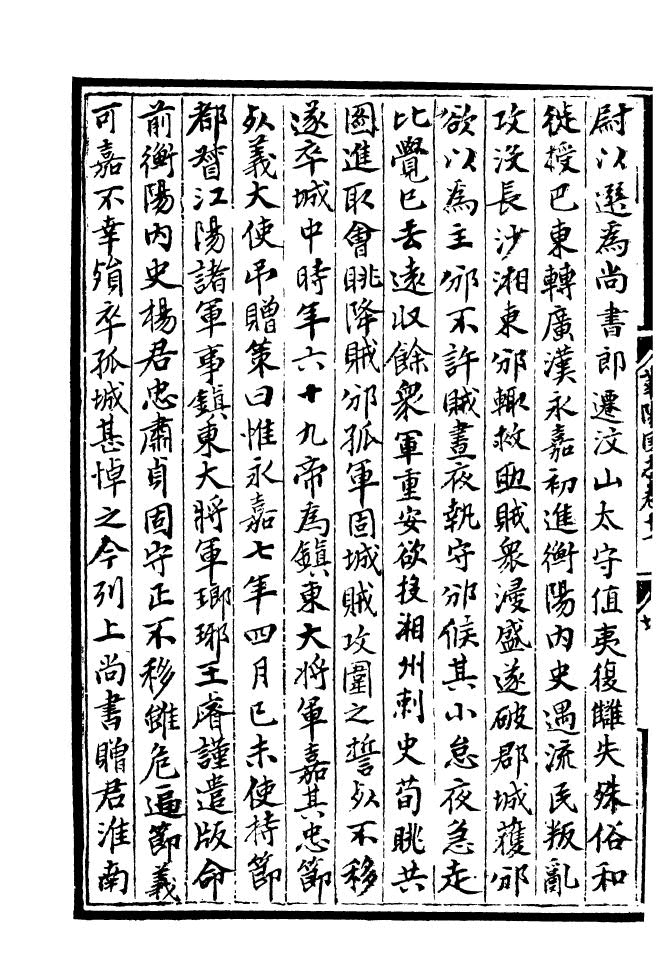 尉以選爲尚書郎遷汶山太守值夷復讎失殊俗和
徙授巴東轉廣漢永嘉初進衡陽内史遇流民叛亂
攻没長沙湘東邠輙救助賊衆漫盛遂破郡城獲邠
欲以爲主邠不許賊晝夜執守邠候其小怠夜急走
比覺已去遠収餘衆軍重安欲投湘州刺史荀眺共
圖進取會眺降賊邠孤軍固城賊攻圍之誓死不移
遂卒城中時年六十九帝爲鎮東大將軍嘉其忠節
死義大使吊贈策曰惟永嘉七年四月已未使持節
都督江陽諸軍事鎮東大將軍瑯琊王睿謹遣版命
前衡陽内史楊君忠肅貞固守正不移雖危逼節義
可嘉不幸殞卒孤城甚悼之今列上尚書贈君淮南